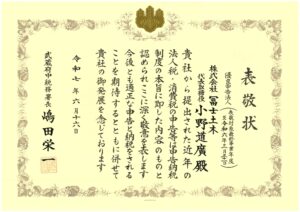 表敬状
優良申告法人
株式会社 冨士土木
代表取締役 小野道廣 殿
貴社から提出された近年の
法人税・消費税の申告等は申告納税
制度の本旨に即した内容のものと
認められここに深く敬意を表します
今後とも適正な申告と納税をされる
ことを期待するとともに併せて
貴社の御発展を念じております
令和七年六月十六日
武蔵府中税務署長 嶋田栄一